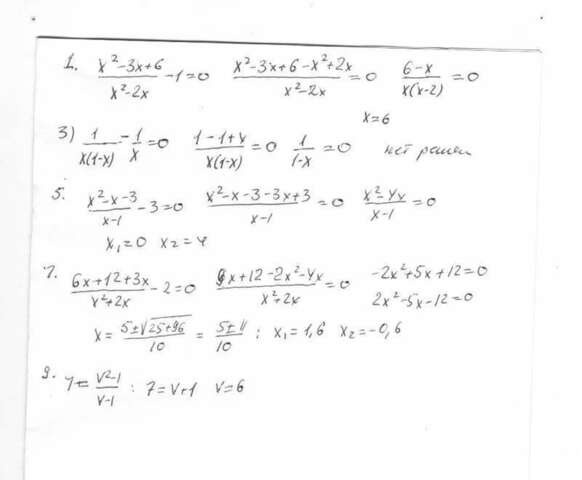 1. (x²-3x+6)/(x²-2x) - 1=0 (x²-3x+6-x²+2x)/(x²-2x) =0 (6-x)/(x(x-2)) =0
x=6
3) 1/(x(1-x)) - 1/x =0 (1-1+x)/(x(1-x)) =0 1/(1-x) =0 нет решен
5. (x²-x-3)/(x-1) - 3=0 (x²-x-3-3x+3)/(x-1) =0 (x²-4x)/(x-1) =0
x₁=0 x₂=4
7. (6x+12+3x)/(x²+2x) - 2=0 (9x+12-2x²-4x)/(x²+2x) =0 -2x²+5x+12=0
2x²-5x-12=0
x= (5±√(25+96))/10 = (5±11)/10 : x₁=1,6 x₂=-0,6
9. 7= (v²-1)/(v-1) : 7=v+1 v=6